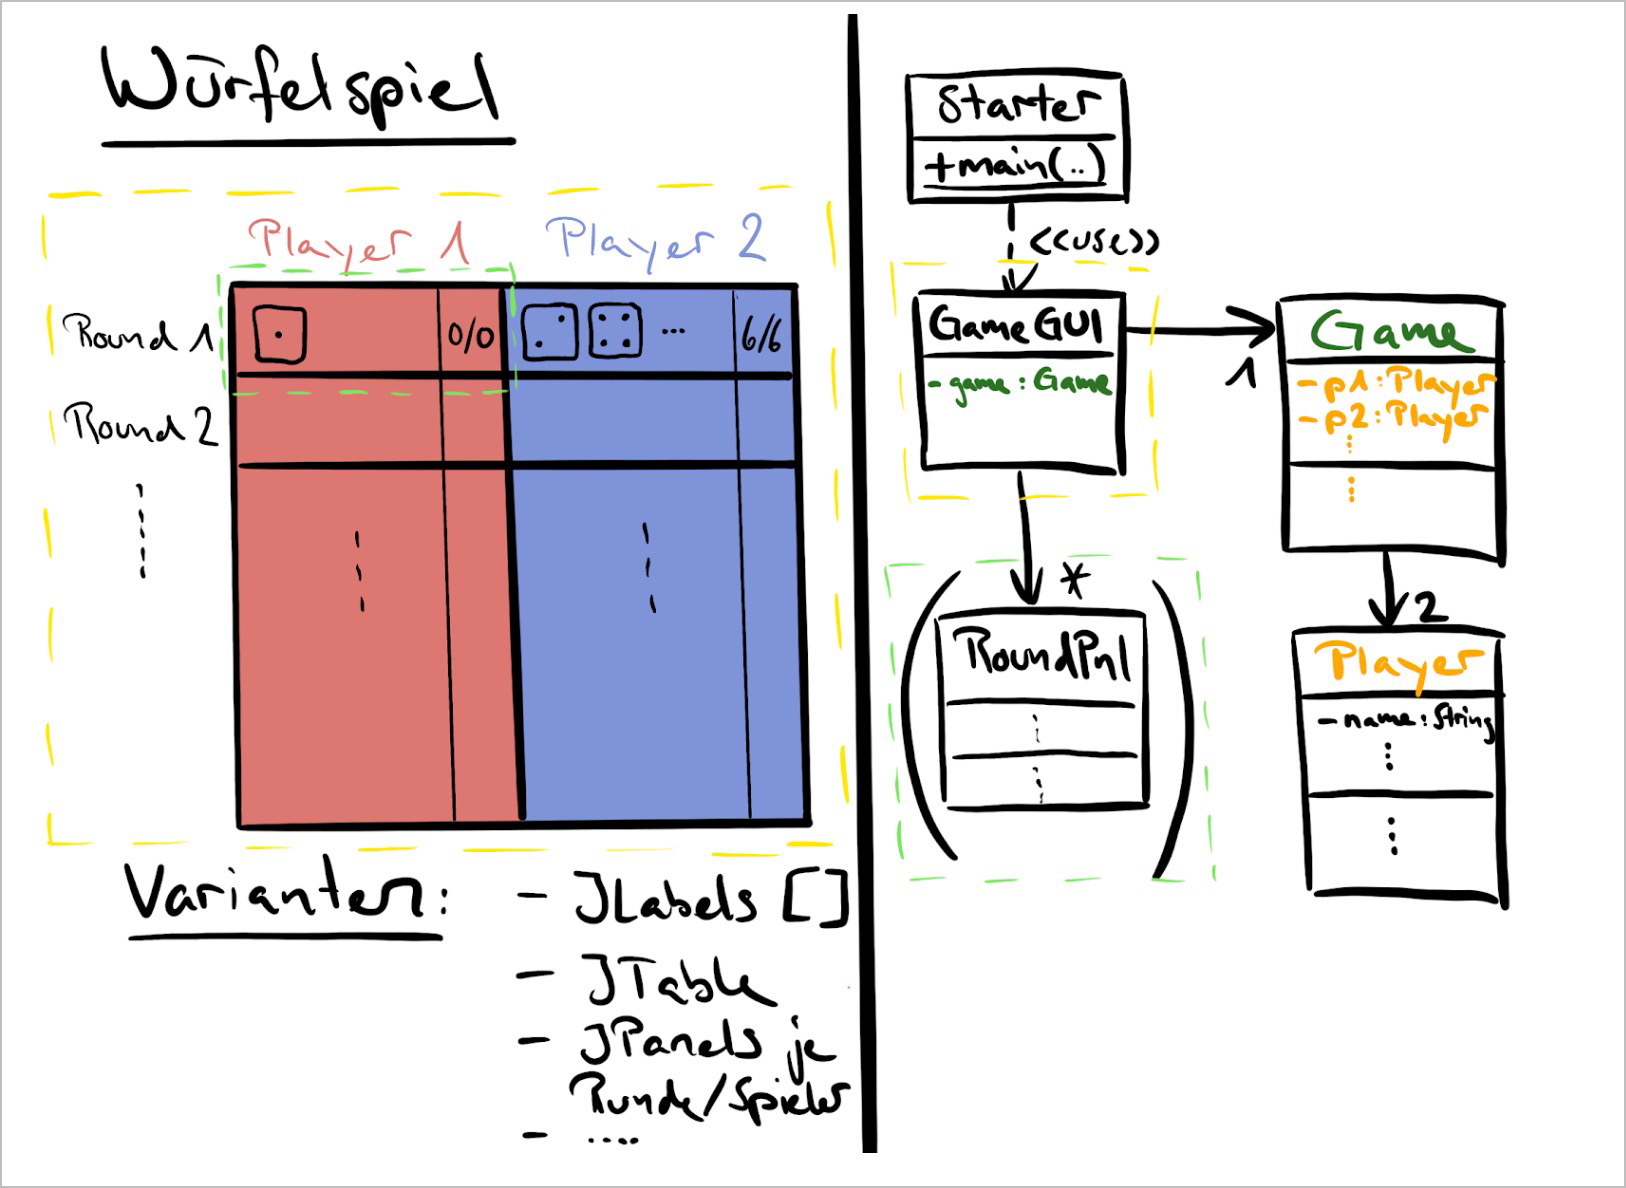 Würfelspiel
Player 1 Player 2
Round 1 0/0 ... 6/6
Round 2
Varianten:
- JLabels []
- JTable
- JPanels je
Runde/Spieler
- ....
Starter
+main(..)
<<use>>
GameGUI
- game: Game
1
Game
- p1: Player
- p2: Player
*
RoundPnl
2
Player
- name: String